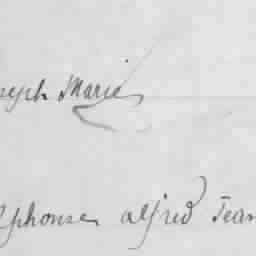 seph Marie
lphonse alfred Jean